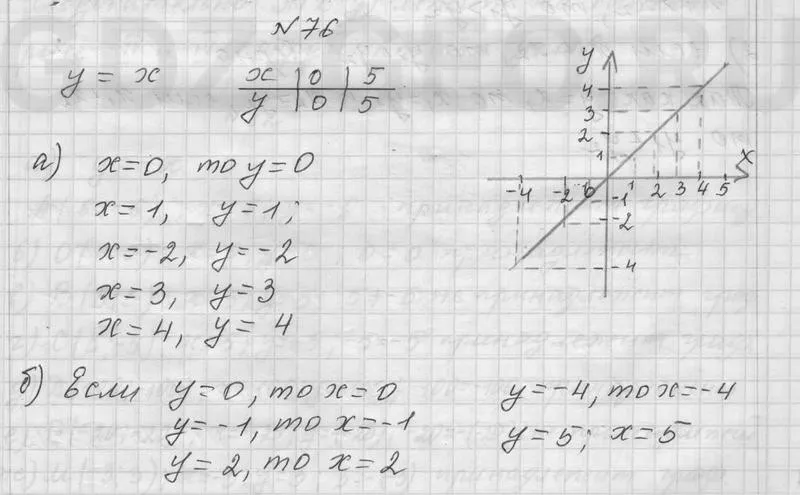 №76
y = x
x | 0 | 5
y | 0 | 5
а) x=0, то y=0
x=1, y=1;
x=-2, y=-2
x=3, y=3
x=4, y=4
y
4
3
2
1
x
-4 -2 0 1 2 3 4 5
-1
-2
-4
б) Если y=0, то x=0
y=-1, то x=-1
y=2, то x=2
y=-4, то x=-4
y=5; x=5